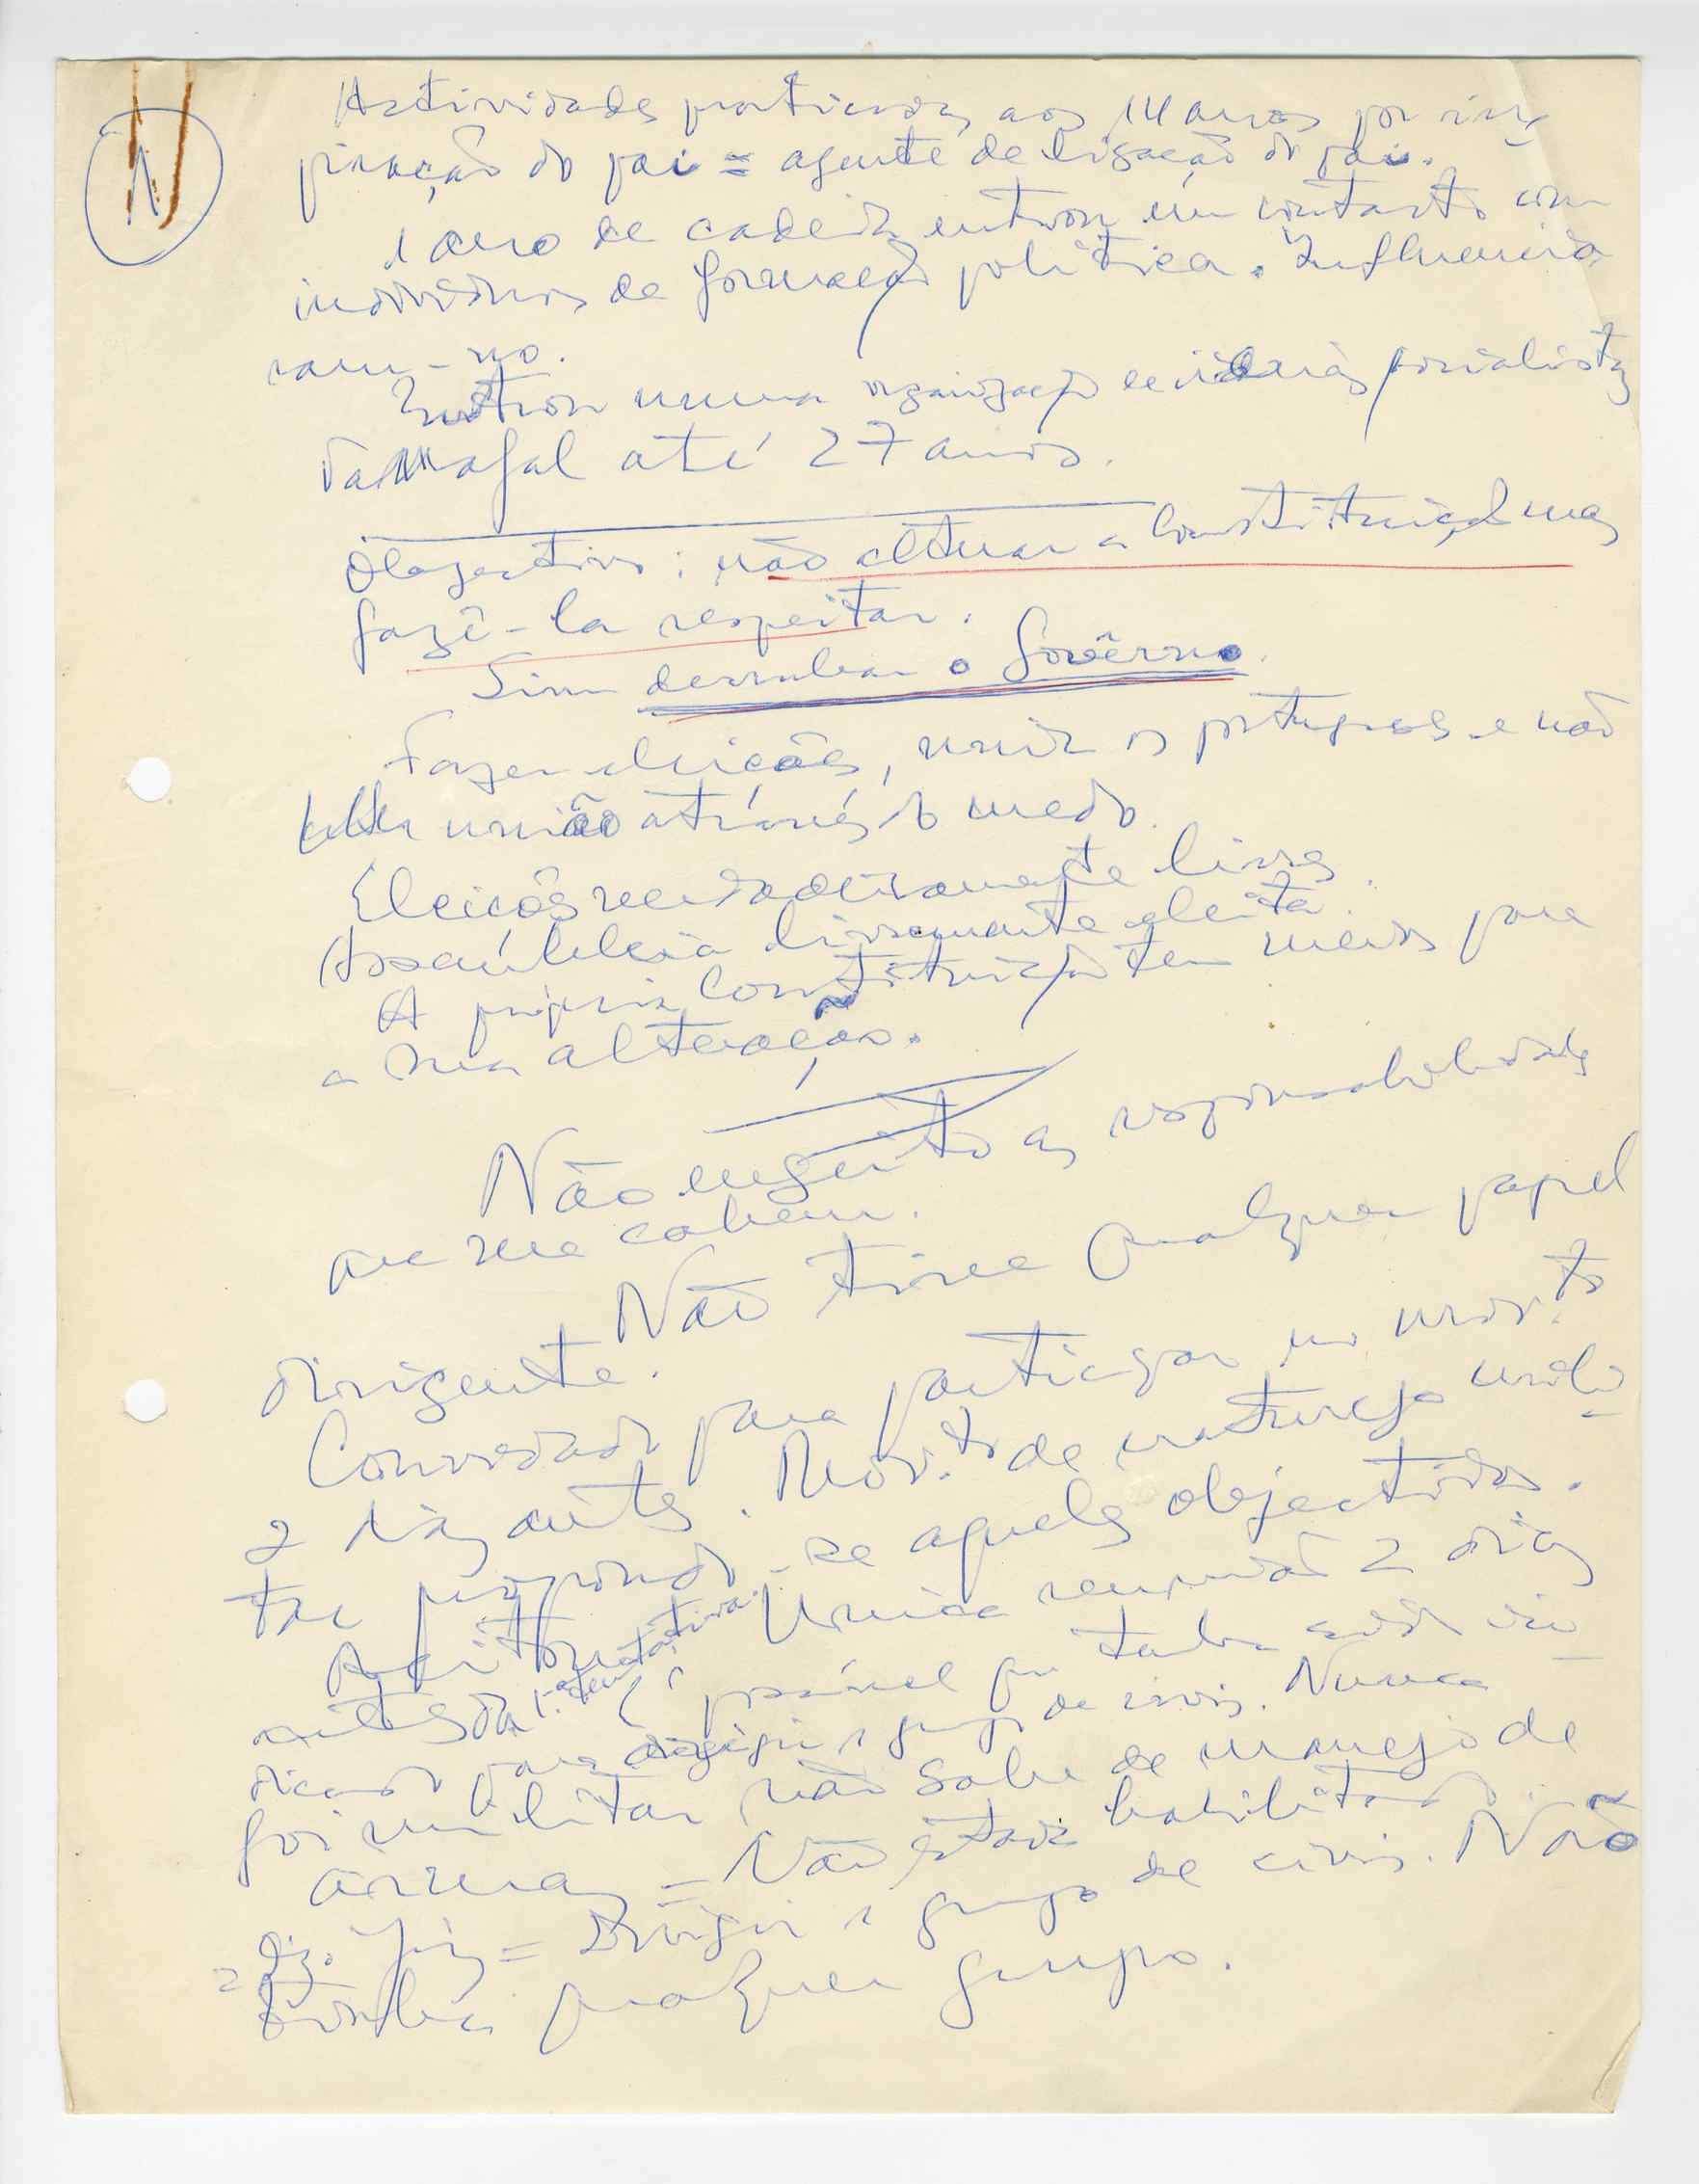 1
Actividades praticadas aos 14 anos por ins
piração do pai = agente de ligação do pai.
1 ano de cadeia entrou em contacto com
indivíduos de formação política. Influencia
ram-no.
Entrou numa organização de ideias socialistas
Tarrafal até 27 anos.
Objectivos: não alterar a Constituição mas
fazê-la respeitar.
Sim derrubar o Govêrno.
Fazer eleições, unir os portugueses e não
união através do medo.
Eleições verdadeiramente livres.
Assembleia livremente eleita.
A própria Constituição tem meios para
a sua alteração.
Não enjeito as responsabilidades
que me cabem.
Não tive qualquer papel
dirigente.
Convidado para participar no mov.to
2 dias antes. Mov.to de natureza mili-
tar propondo-se aqueles objectivos.
Aceitou. Unica reunião 2 dias
antes da 1.ª tentativa. É possível que tenha sido in-
dicado para dirigir 1 grupo de civis. Nunca
foi militar não sabe de manejo de
armas = Não estava habilitado.
= Diz. Juiz = Dirigir 1 grupo de civis. Não
qualquer grupo.